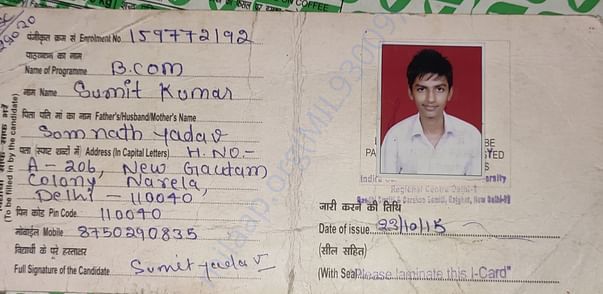 पंजीकृत क्रम सं Enrolment No. 159772192
पाठ्यक्रम का नाम
Name of Programme B.COM
नाम Name Sumit Kumar
पिता पति मां का नाम Father's/Husband/Mother's Name
Som nath yadav
पता (स्पष्ट शब्दों में) Address (In Capital Letters) H.NO-
A-206, New Gautam
Colony Narela,
Delhi - 110040
पिन कोड Pin Code 110040
मोबाईल Mobile 8750290835
विद्यार्थी के पूरे हस्ताक्षर
Full Signature of the Candidate Sumit yadav
(To be filled in by the candidate)
COFFEE
Regional Centre Delhi-1
जारी करने की तिथि
Date of issue 23/10/15
(सील सहित)
(With Seal) Please laminate this I-Card"